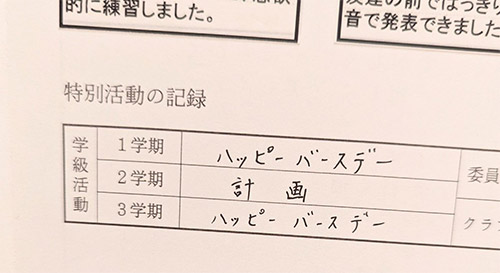 的に練習しました。
音で発表できました
特別活動の記録
学級活動
1学期 ハッピーバースデー
2学期 計画
3学期 ハッピーバースデー
委員
クラ